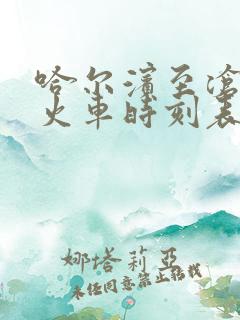 哈尔滨至沧
火车时刻表
娜塔莉亚
未经同意禁止转载